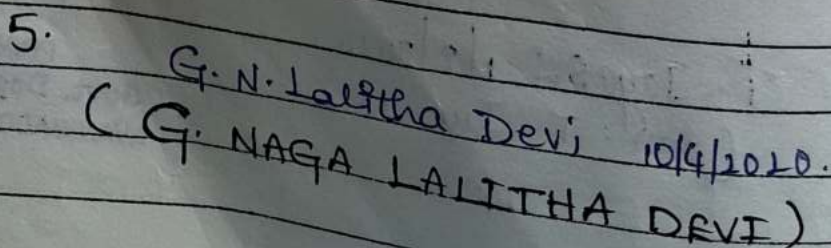 5.
G. N. Lalitha Devi 10/4/2020.
(G. NAGA LALITHA DEVI)